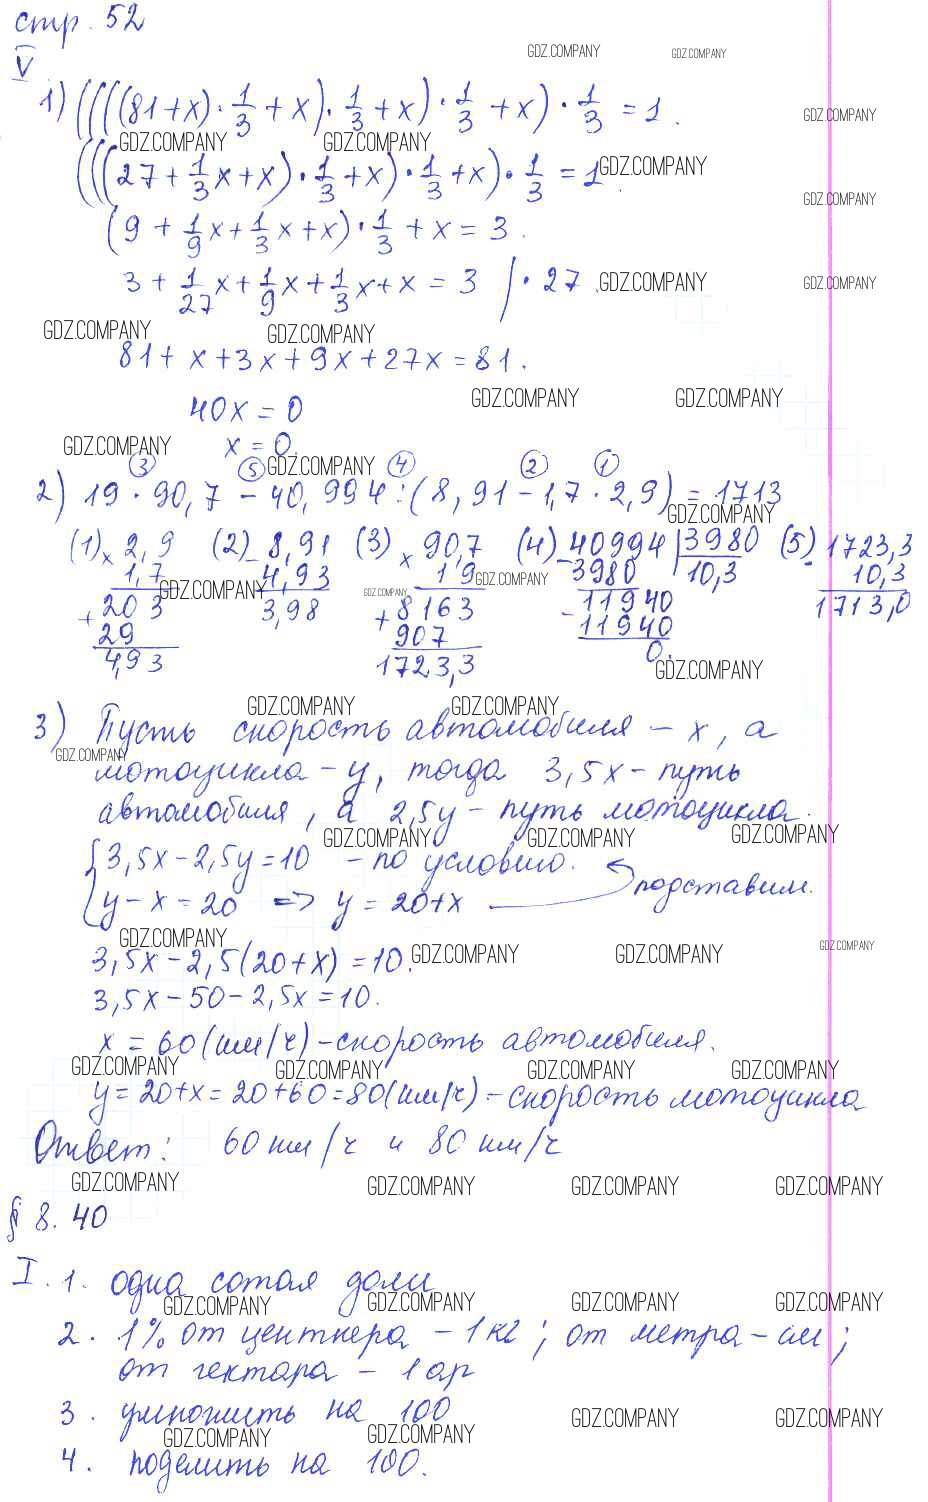 стр. 52
V
1) ((((81+x)·1/3+x)·1/3+x)·1/3+x)·1/3=1.
(((27+1/3x+x)·1/3+x)·1/3+x)·1/3=1.
(9+1/9x+1/3x+x)·1/3+x=3.
3+1/27x+1/9x+1/3x+x=3 |·27.
81+x+3x+9x+27x=81.
40x=0
x=0.
③ ⑤ ④ ② ①
2) 19·90,7-40,994:(8,91-1,7·2,9)=1713
(1) × 2,9 (2) - 8,91 (3) × 90,7 (4) - 40994 | 3980 (5) - 1723,3
1,7 4,93 19 3980 10,3 10,3
+ 203 3,98 + 8163 11940 1713,0
29 907 - 11940
4,93 1723,3 0.
3) Пусть скорость автомобиля - x, а
мотоцикла - y, тогда 3,5x - путь
автомобиля, а 2,5y - путь мотоцикла.
{3,5x-2,5y=10 - по условию.
y-x=20 => y=20+x подставим.
3,5x-2,5(20+x)=10.
3,5x-50-2,5x=10.
x=60(км/ч)-скорость автомобиля.
y=20+x=20+60=80(км/ч)-скорость мотоцикла
Ответ: 60 км/ч и 80 км/ч
§ 8. 40
I. 1. одна сотая доли
2. 1% от центнера - 1 кг; от метра - см;
от гектара - 1 ар
3. умножить на 100
4. поделить на 100.
GDZ.COMPANY